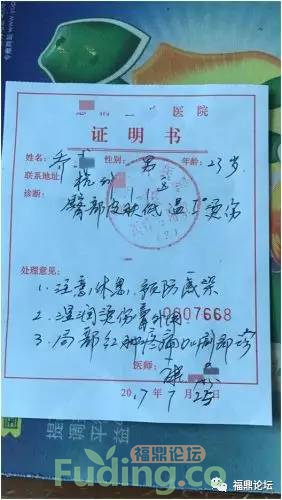 医院
证明书
姓名: 乔 性别: 男 年龄: 23岁
联系地址: 杭州
诊断:
臀部皮肤低温Ⅰ°烫伤
处理意见:
1. 注意休息, 预防感染
2. 湿润烫伤膏外用
0807668
3. 局部红肿疼痛加剧即诊
医师:
2017年7月25
提调
平
益
福鼎论坛
Fuding.co
福鼎论坛